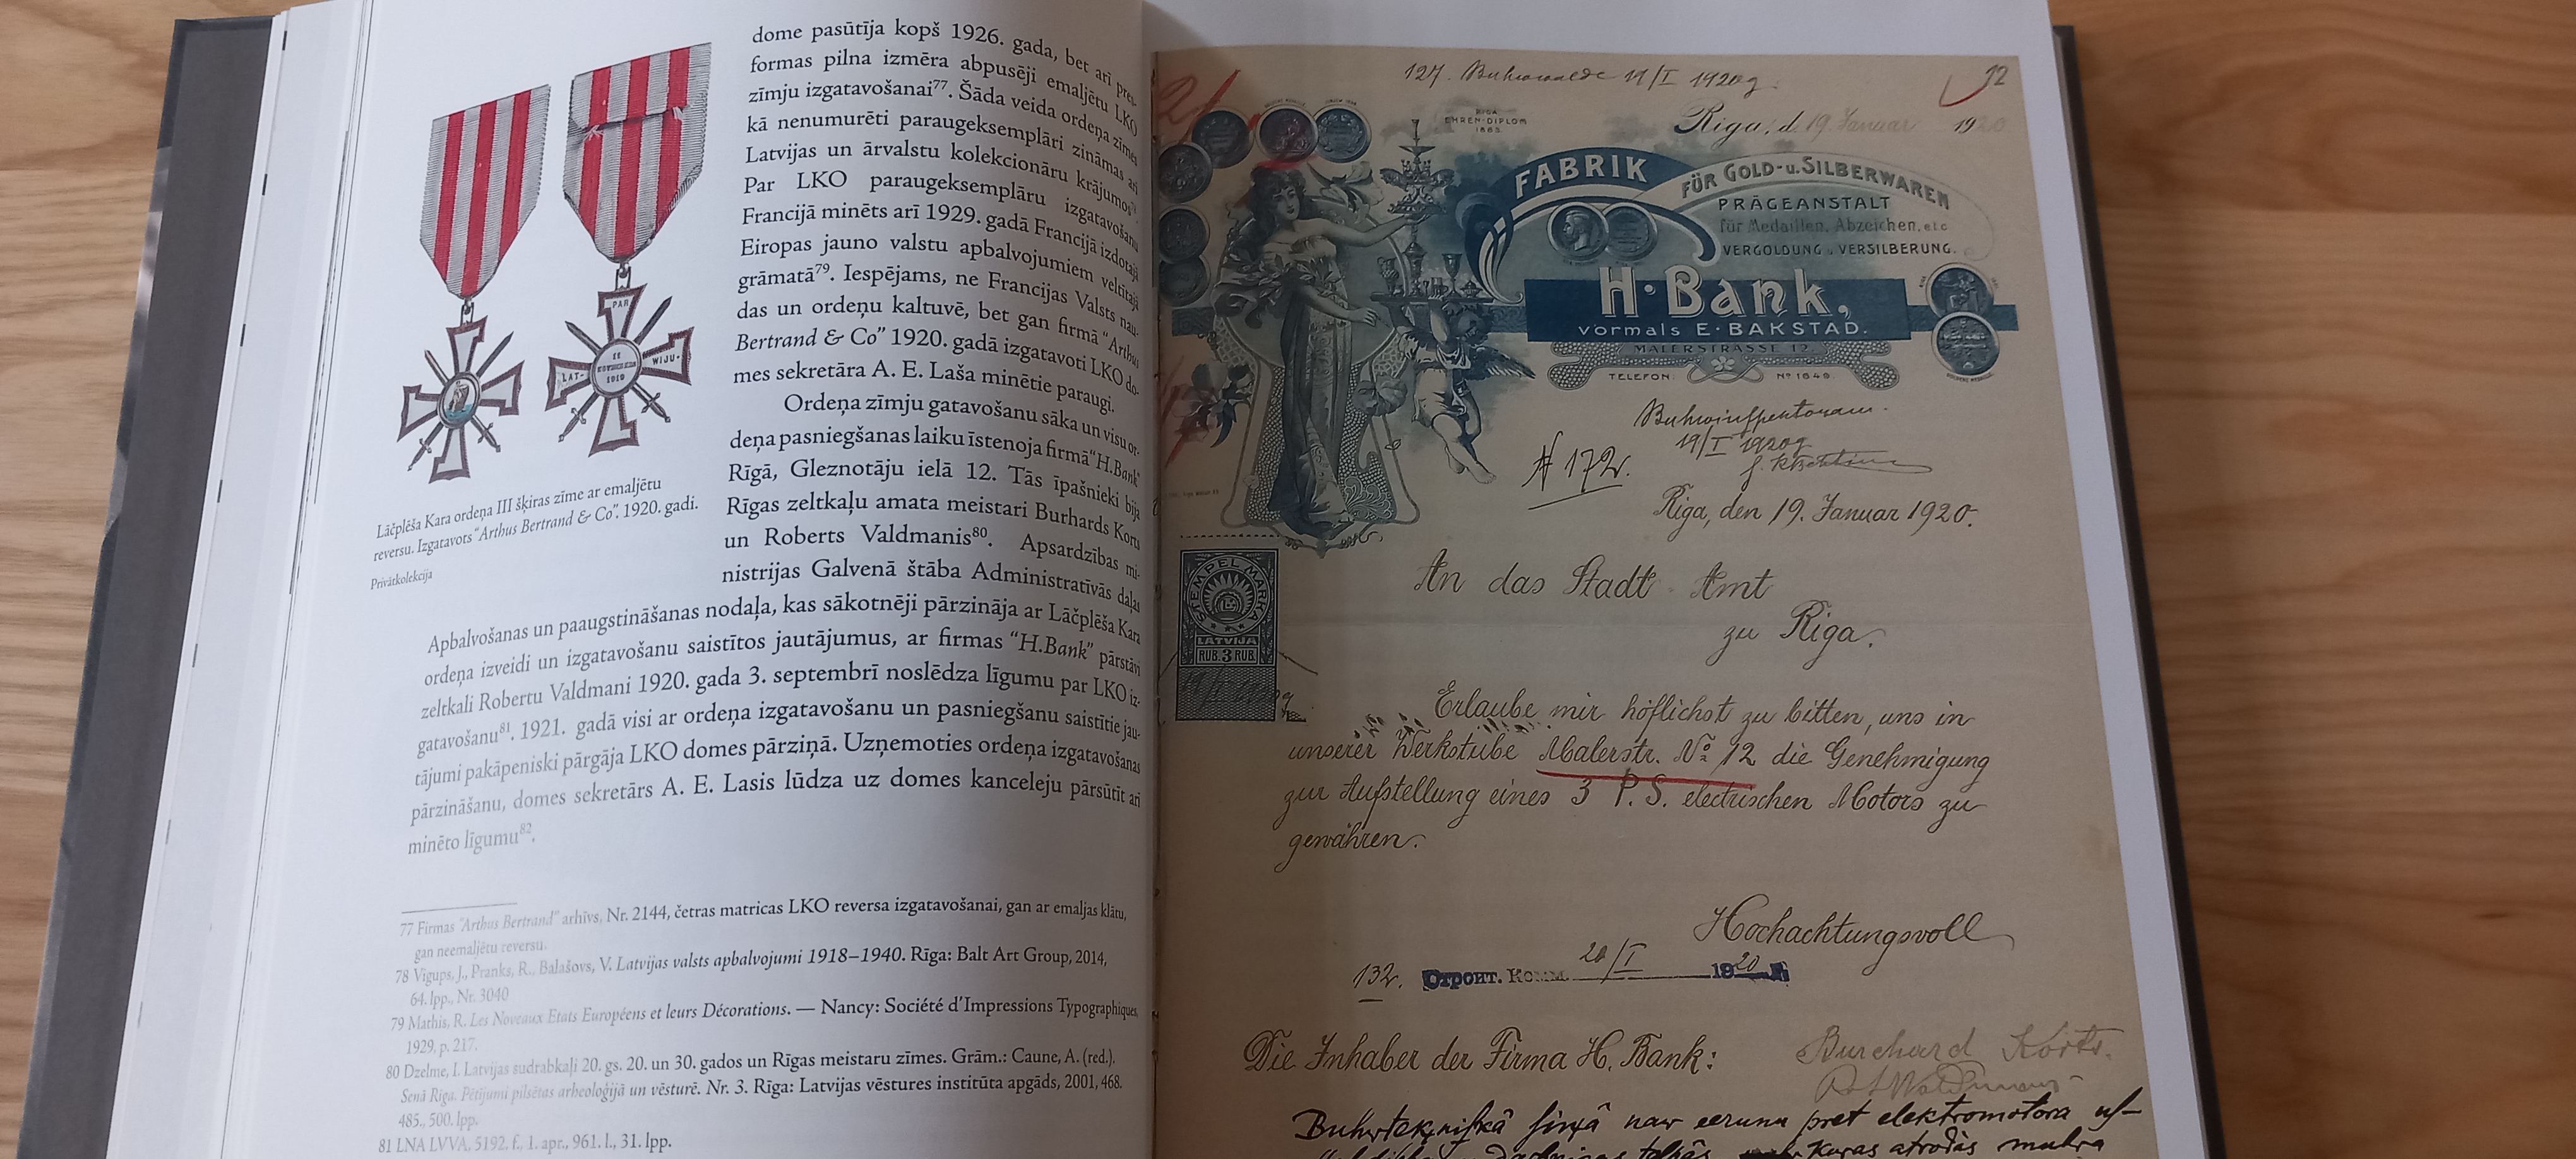 dome pasūtīja kopš 1926. gada, bet arī pret
formas pilna izmēra abpusēji emaljētu LKO
zīmju izgatavošanai77. Šāda veida ordeņa zīmes
kā nenumurēti paraugeksemplāri zināmas arī
Latvijas un ārvalstu kolekcionāru krājumos78.
Par LKO paraugeksemplāru izgatavošanu
Francijā minēts arī 1929. gadā Francijā izdotajā
Eiropas jauno valstu apbalvojumiem veltītajā
grāmatā79. Iespējams, ne Francijas Valsts nau-
das un ordeņu kaltuvē, bet gan firmā “Arthus
Bertrand & Co” 1920. gadā izgatavoti LKO do-
mes sekretāra A. E. Laša minētie paraugi.
Ordeņa zīmju gatavošanu sāka un visu or-
deņa pasniegšanas laiku īstenoja firma “H.Bank”
Rīgā, Gleznotāju ielā 12. Tās īpašnieki bija
Rīgas zeltkaļu amata meistari Burhards Korts
un Roberts Valdmanis80. Apsardzības mi-
nistrijas Galvenā štāba Administratīvās daļas
Apbalvošanas un paaugstināšanas nodaļa, kas sākotnēji pārzināja ar Lāčplēša Kara
ordeņa izveidi un izgatavošanu saistītos jautājumus, ar firmas “H.Bank” pārstāvi
zeltkali Robertu Valdmani 1920. gada 3. septembrī noslēdza līgumu par LKO iz-
gatavošanu81. 1921. gadā visi ar ordeņa izgatavošanu un pasniegšanu saistītie jau-
tājumi pakāpeniski pārgāja LKO domes pārziņā. Uzņemoties ordeņa izgatavošanas
pārzināšanu, domes sekretārs A. E. Lasis lūdza uz domes kanceleju pārsūtīt arī
minēto līgumu82.
PAR
LAT-
WIJU-
11
1919
Lāčplēša Kara ordeņa III šķiras zīme ar emaljētu
reversu. Izgatavots “Arthus Bertrand & Co”. 1920. gadi.
Privātkolekcija
77 Firmas “Arthus Bertrand” arhīvs, Nr. 2144, četras matricas LKO reversa izgatavošanai, gan ar emaljas klātu,
gan neemaljētu reversu.
78 Vigups, J., Pranks, R., Balašovs, V. Latvijas valsts apbalvojumi 1918–1940. Rīga: Balt Art Group, 2014,
64. lpp., Nr. 3040
79 Mathis, R. Les Noveaux Etats Européens et leurs Décorations. — Nancy: Société d’Impressions Typographiques,
1929, p. 217.
80 Dzelme, I. Latvijas sudrabkaļi 20. gs. 20. un 30. gados un Rīgas meistaru zīmes. Grām.: Caune, A. (red.).
Senā Rīga. Pētījumi pilsētas arheoloģijā un vēsturē. Nr. 3. Rīga: Latvijas vēstures institūta apgāds, 2001, 468.
485., 500. lpp.
81 LNA LVVA, 5192. f., 1. apr., 961. l., 31. lpp.
127. 19/I 1920g.
RIGA
EHREN-DIPLOM
1883
Riga, d. 19. Januar 1920
FABRIK
FÜR GOLD- u. SILBERWAREN
PRÄGEANSTALT
für Medaillen, Abzeichen, etc
VERGOLDUNG u. VERSILBERUNG.
H. Bank,
vormals E. BAKSTAD.
MALERSTRASSE 12.
TELEFON: No 1649.
19/I 1920g
№ 172.
Riga, den 19. Januar 1920.
An das Stadt-Amt
zu Riga.
STEMPEL MARKA
LATVIJA
RUB. 3 RUB.
Erlaube mir höflichst zu bitten, uns in
unserer Werkstube Malerstr. No 12 die Genehmigung
zur Aufstellung eines 3 P.S. electrischen Motors zu
gewähren.
Hochachtungsvoll
132. Строит. Комм. 20/I 1920 г.
Die Inhaber der Firma H. Bank: Burchard Korts.
naw eerunu pret elektromotora
Kuras atrodās muhra